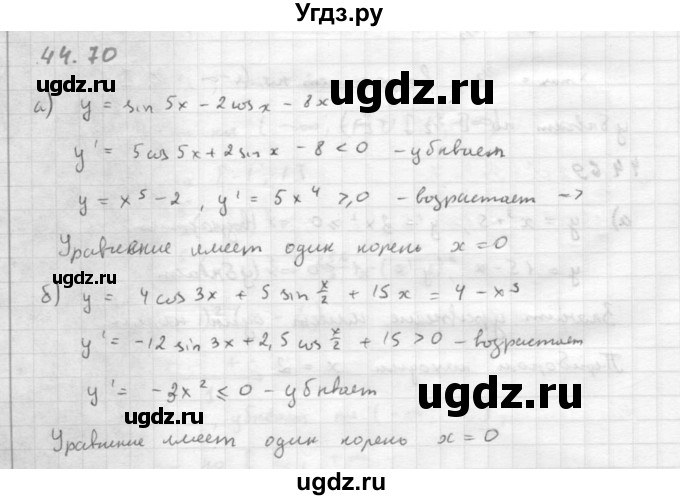 Угдз.ру
44.70
ugdz.ru ugdz.ru
а) y = sin 5x - 2cos x - 8x
y' = 5 cos 5x + 2 sin x - 8 < 0 - убывает
y = x⁵ - 2, y' = 5x⁴ ≥ 0 - возрастает ->
Уравнение имеет один корень x = 0
ugdz.ru ugdz.ru
б) y = 4 cos 3x + 5 sin x/2 + 15 x = 4 - x³
y' = -12 sin 3x + 2,5 cos x/2 + 15 > 0 - возрастает
ugdz.ru ugdz.ru
y' = -3x² ≤ 0 - убывает
Уравнение имеет один корень x = 0
ugdz.ru ugdz.ru
ugdz.ru